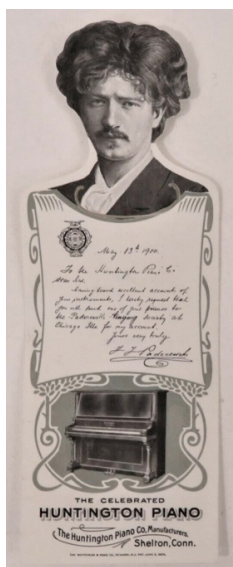 May 13th 1900.
To the Huntington Piano Co.
Dear Sirs
Having heard excellent accounts of
your instruments, I hereby request that
you will send one of your pianos to
the Paderewski Society at
Chicago Ills for my account,
Yours very truly
I J Paderewski
THE CELEBRATED
HUNTINGTON PIANO
The Huntington Piano Co, Manufacturers,
Shelton, Conn.